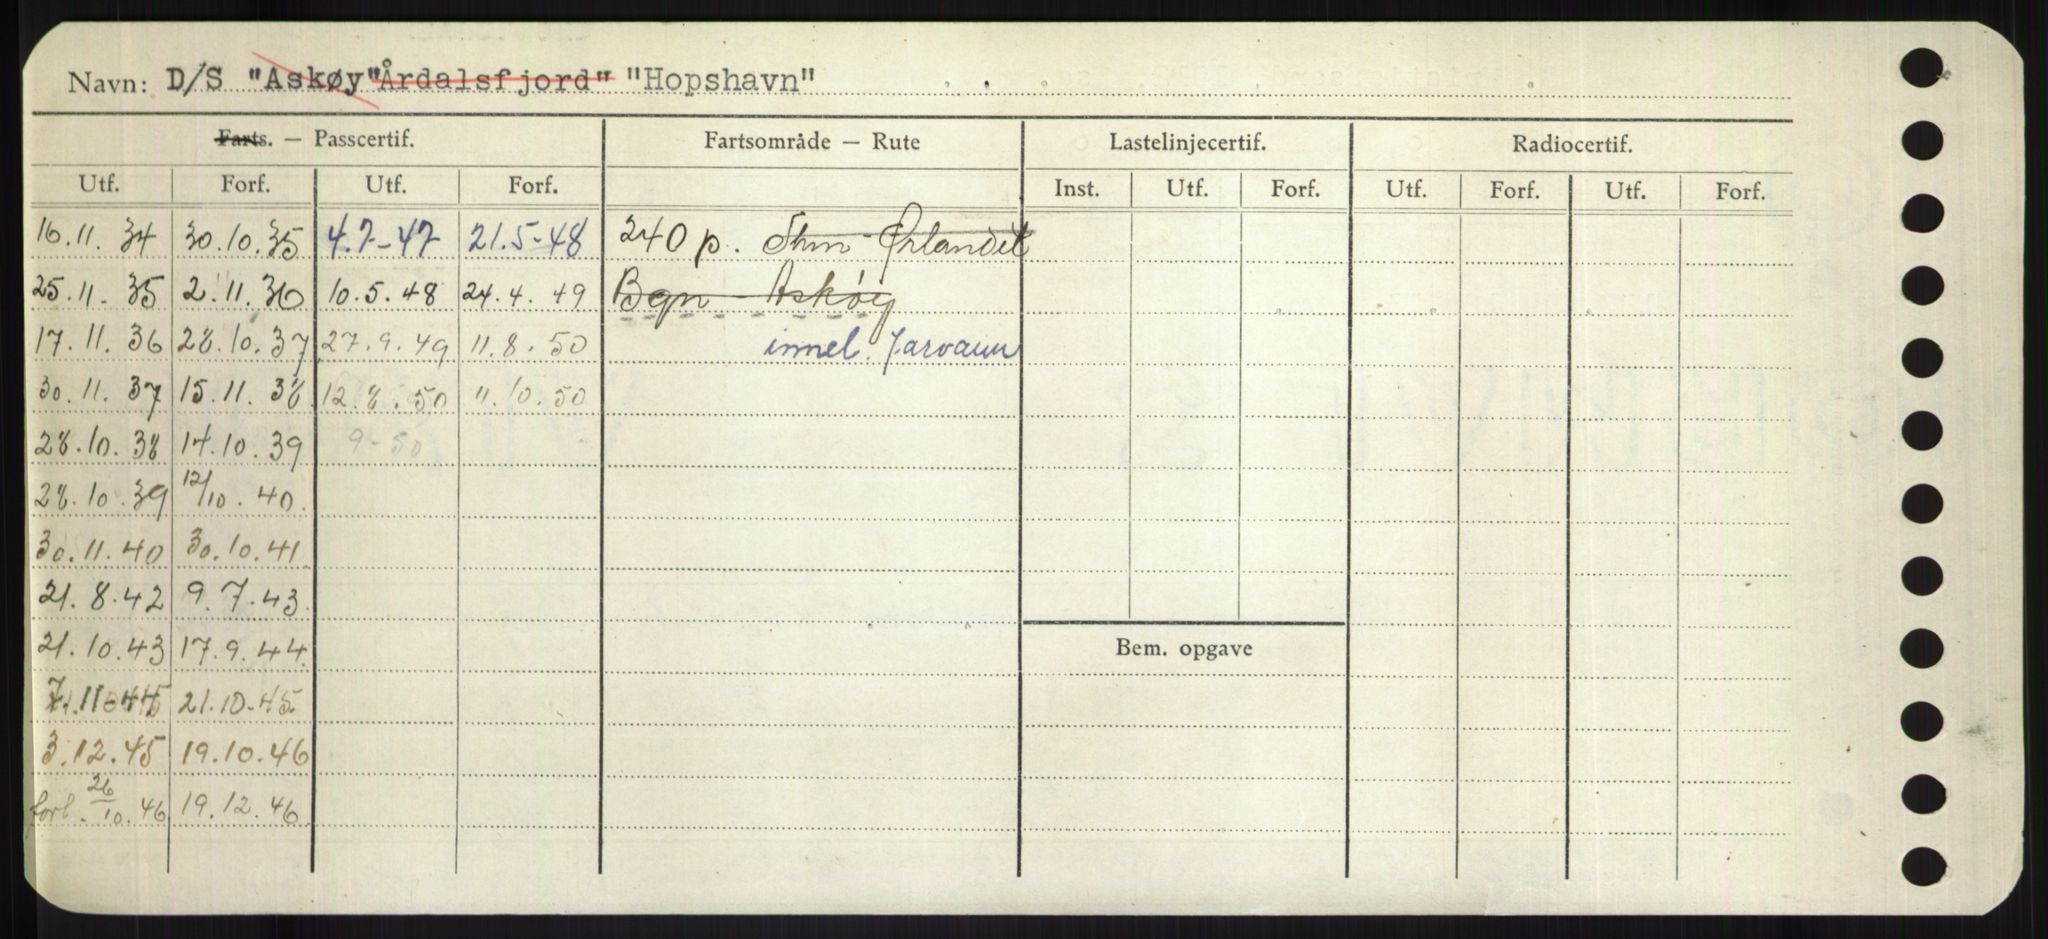 Navn: D/S "Askøy" "Årdalsfjord" "Hopshavn"
Farts. — Passcertif. Fartsområde — Rute Lastelinjecertif. Radiocertif.
Utf. Forf. Utf. Forf. Inst. Utf. Forf. Utf. Forf. Utf. Forf.
16.11.34 30.10.35 4.7-47 21.5-48 240 p. Ørlandet
25.11.35 2.11.36 10.5.48 24.4.49 Bgn - Askøy
17.11.36 28.10.37 27.9.49 11.8.50 innel.
30.11.37 15.11.38 12.8.50 11.10.50
28.10.38 14.10.39 9-50
28.10.39 12/10.40
30.11.40 30.10.41
21.8.42 9.7.43
21.10.43 17.9.44
7.11.44 21.10.45
3.12.45 19.10.46
forl. 26/10.46 19.12.46
Bem. opgave